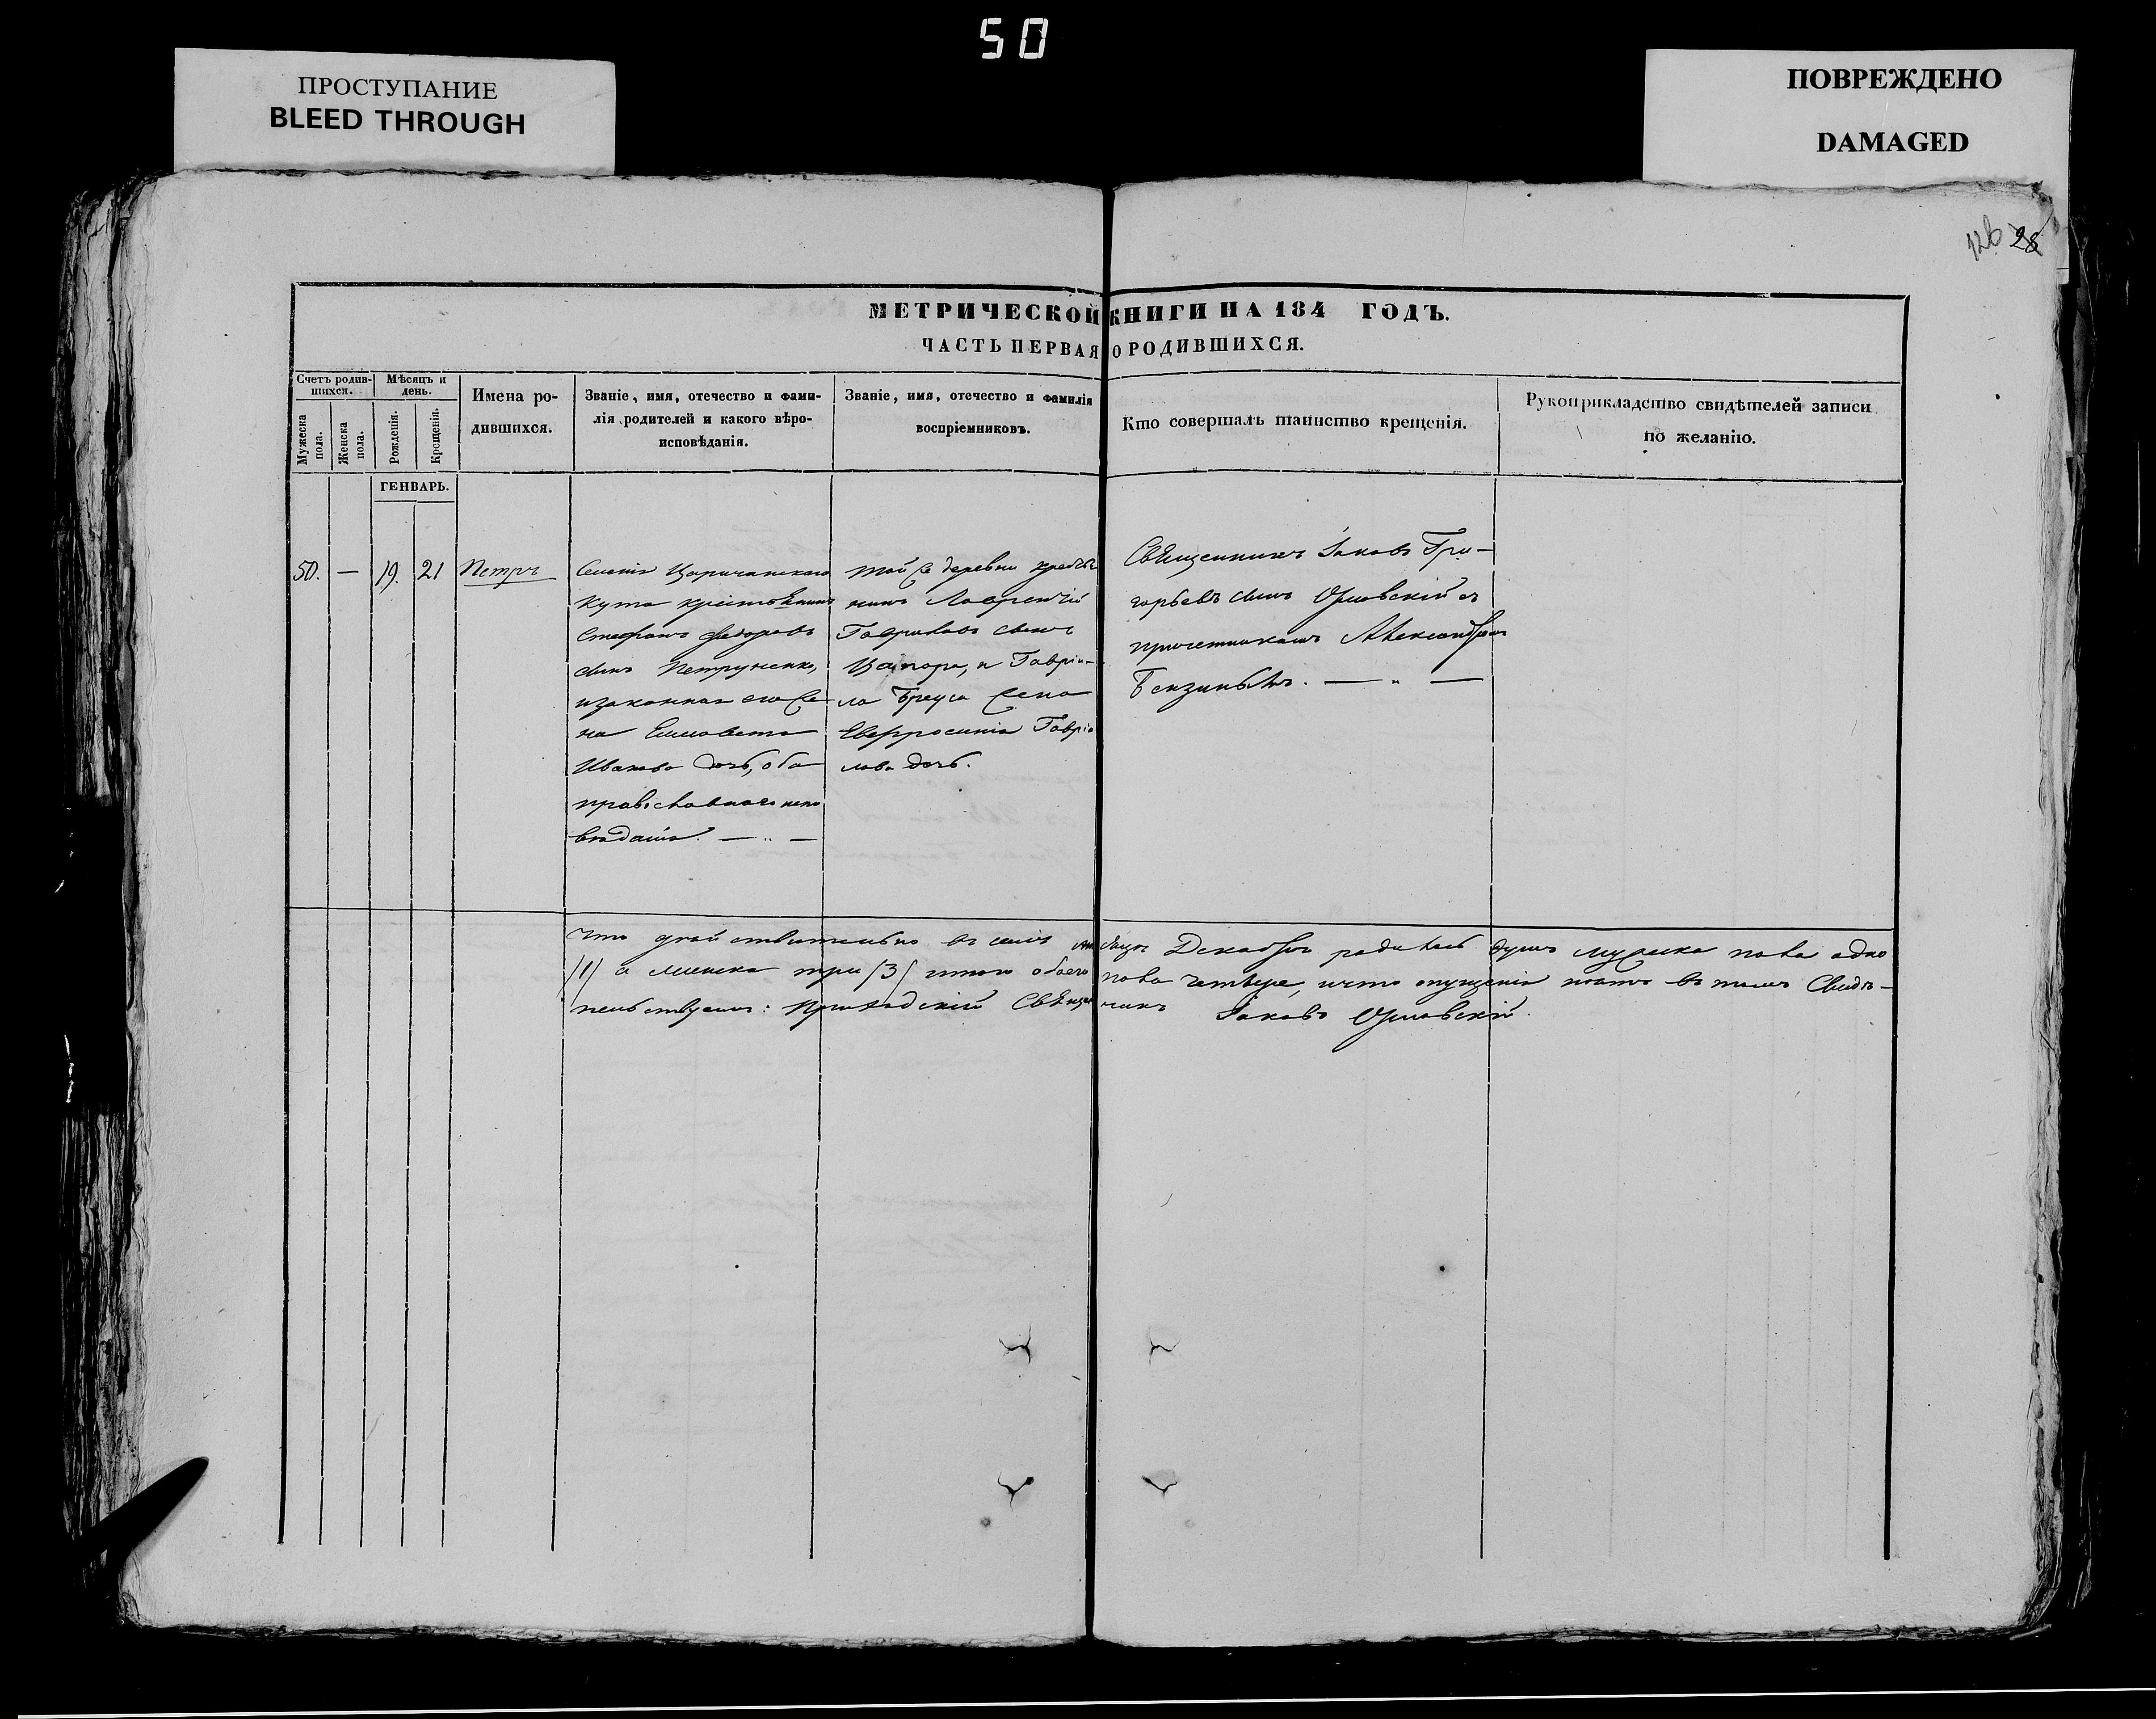 50
ПРОСТУПАНИЕ
BLEED THROUGH
ПОВРЕЖДЕНО
DAMAGED
126 28
МЕТРИЧЕСКОЙ КНИГИ НА 184 ГОДЪ.
ЧАСТЬ ПЕРВАЯ О РОДИВШИХСЯ.
Счетъ родив-
шихся.
Мѣсяцъ и
день.
Мужеска
пола.
Женска
пола.
Рожденія.
Крещенія.
Имена ро-
дившихся.
Званіе, имя, отечество и фами-
лія родителей и какого вѣро-
исповѣданія.
Званіе, имя, отечество и фамилія
воспріемниковъ.
Кто совершалъ таинство крещенія.
Рукоприкладство свидѣтелей записи
по желанію.
ГЕНВАРЬ.
50. — 19. 21 Петръ
Царичанскаго
Кута
Стефанъ Федоровъ
сынъ Петрусенко,
изаконная его же-
на Елисавета
Иванова дочь, оба
православнаго испо
вѣданія. — „ —
той же деревни
нинъ Лаврентій
Гавриловъ сынъ
и Гаврі-
ла жена
Евфросинія Гаврі
лова дочь.
Священникъ Іаковъ Гри-
горьевъ сынъ Орловскій съ
причетникомъ Александромъ
— „ —
что дѣйствительно въ семъ мѣсяцѣ Декабрѣ родилось душъ мужеска пола одно
/1/ а женска три /3/ итого обоего пола четыре, ичто опущенія нѣтъ въ томъ Свидѣ-
тельствуемъ: Приходскій Священникъ Іаковъ Орловскій.